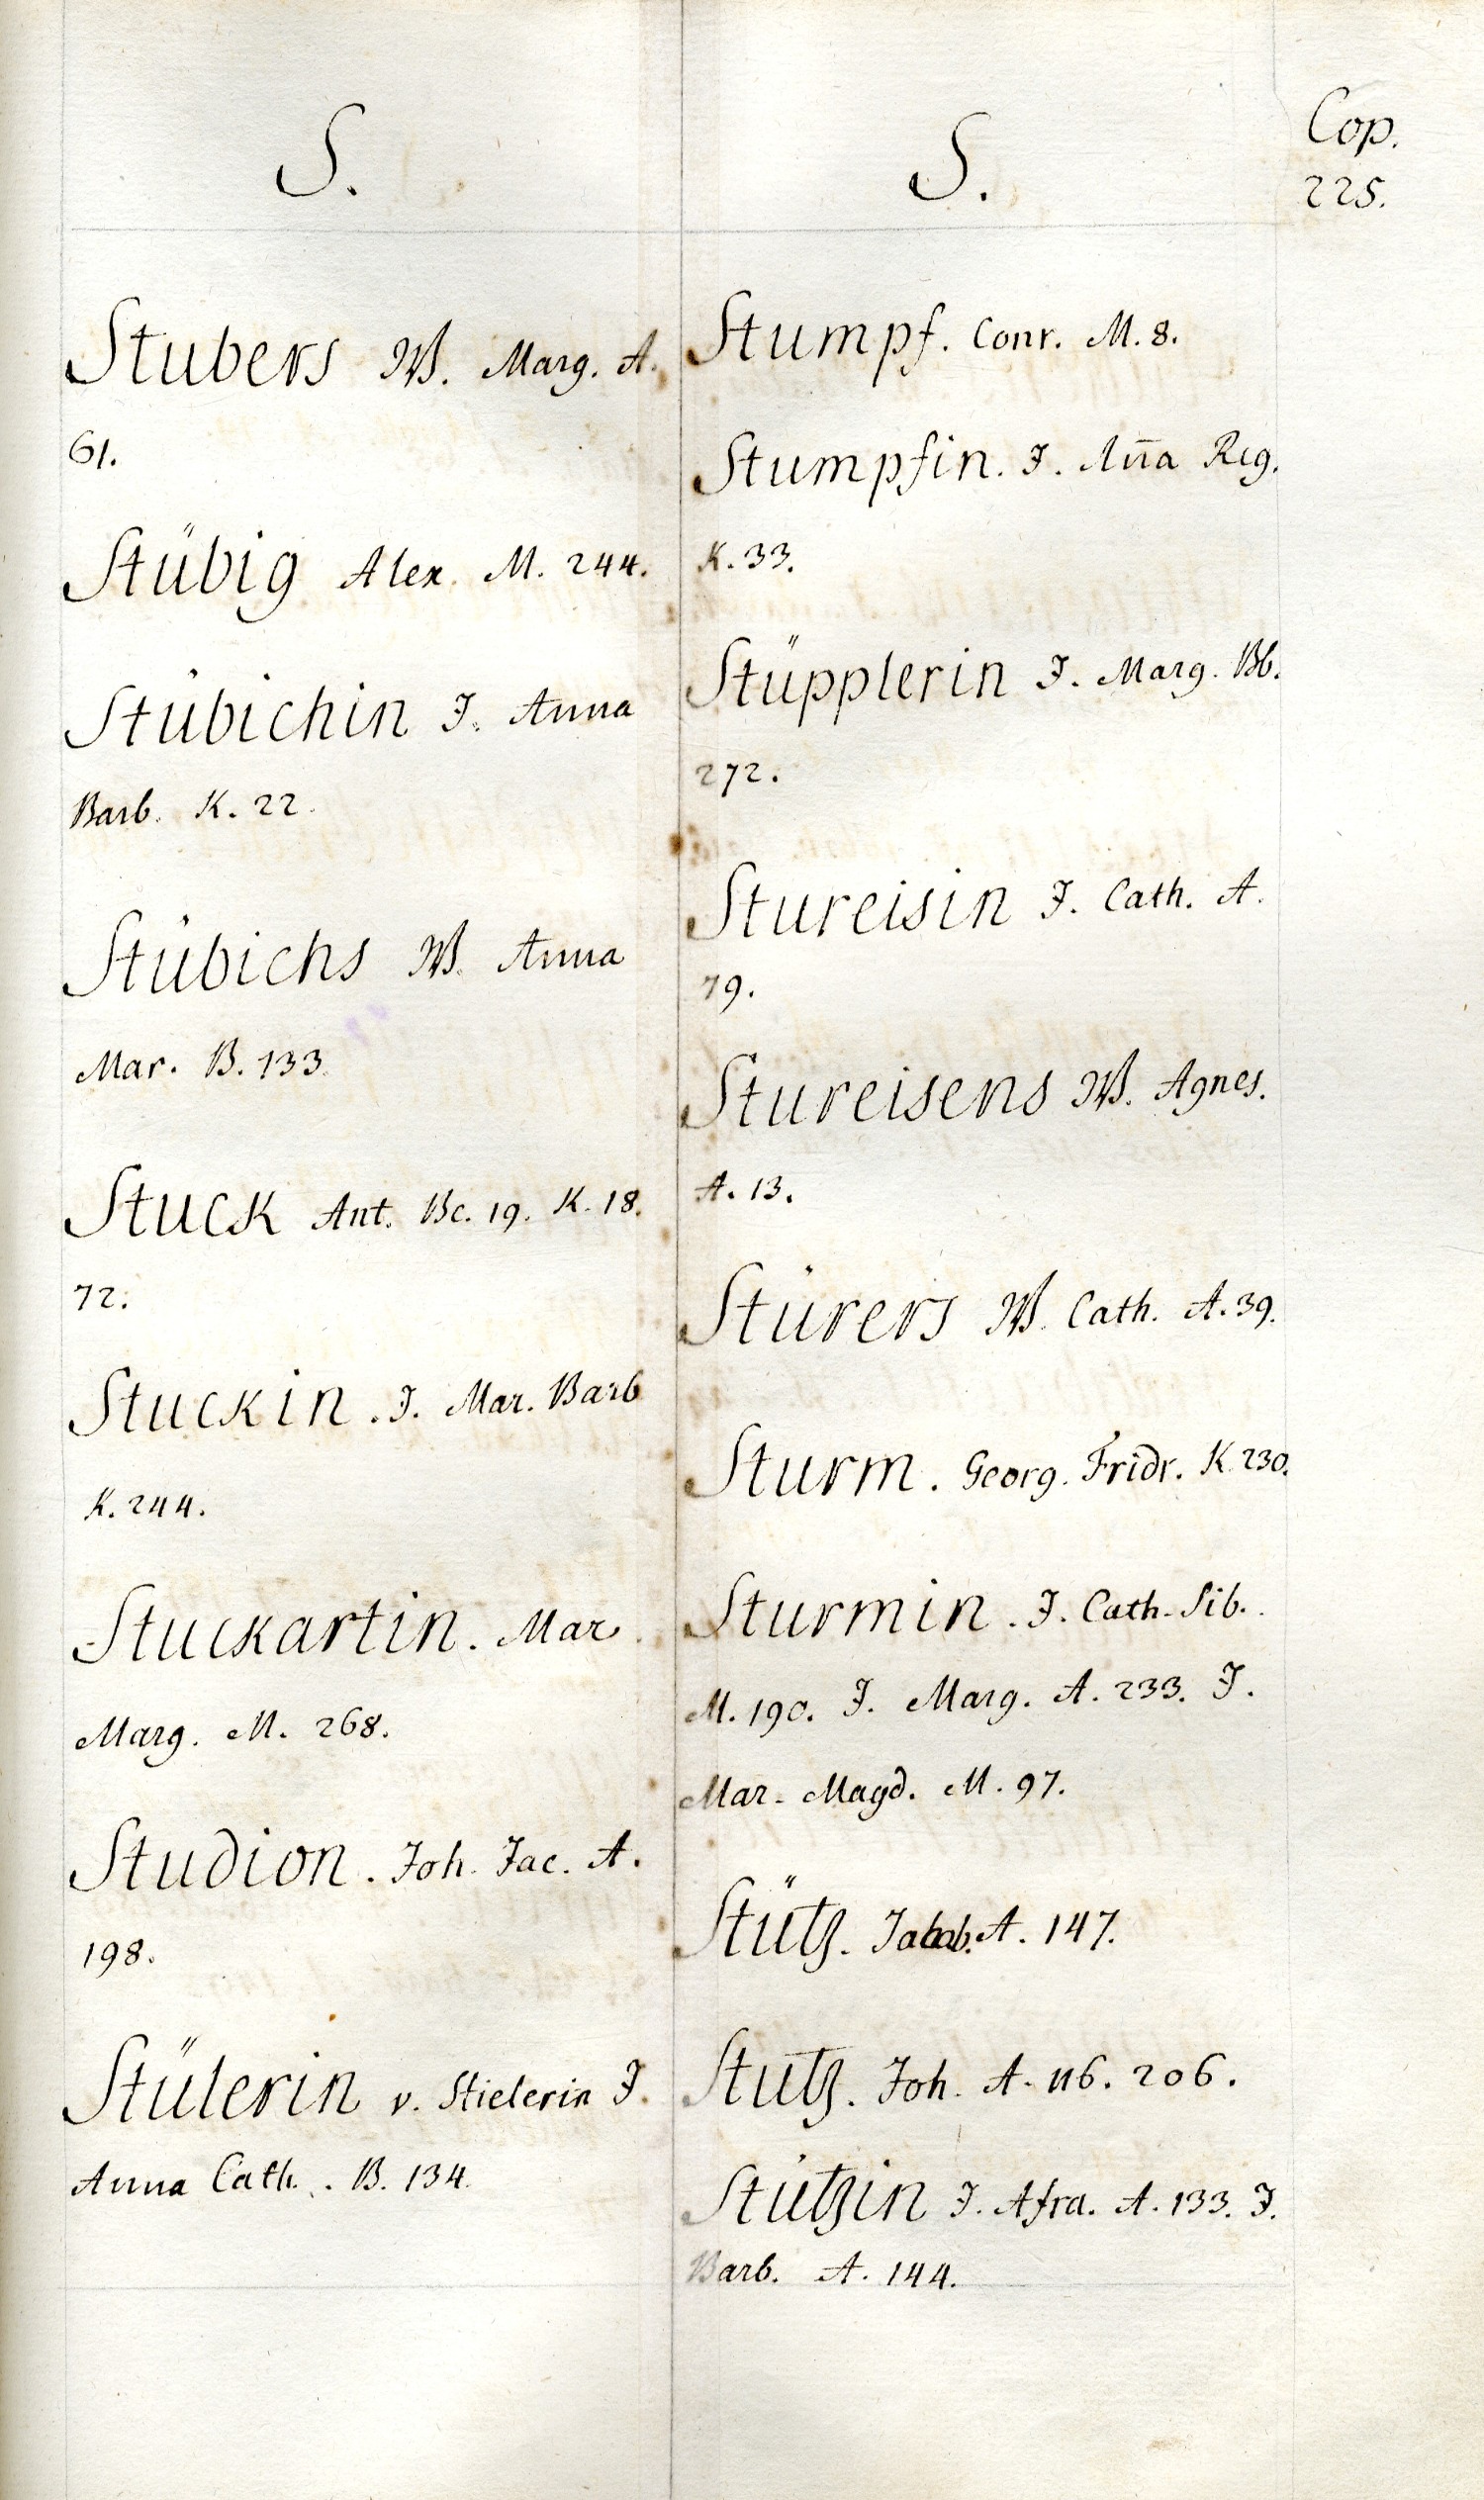 S.
Stubers W. Marg. A.
61.
Stübig Alex. M. 244.
Stübichin J. Anna
Barb. K. 22.
Stübichs W. Anna
Mar. B. 133.
Stuck Ant. Bc. 19. K. 18.
72.
Stuckin. J. Mar. Barb
K. 244.
Stuckartin. Mar.
Marg. M. 268.
Studion. Joh. Jac. A.
198.
Stülerin v. Stielerin J.
Anna Cath. B. 134.
S.
Stumpf. Conr. M. 8.
Stumpfin. J. Anna Reg.
K. 33.
Stüpplerin J. Marg. Bb.
272.
Stureisin J. Cath. A.
79.
Stureisens W. Agnes.
A. 13.
Stürers W. Cath. A. 39.
Sturm. Georg. Fridr. K. 230.
Sturmin. J. Cath. Sib.
M. 190. J. Marg. A. 233. J.
Mar. Magd. M. 97.
Stütz. A. 147.
Stutz. Joh. A. 116. 206.
Stützin J. Afra. A. 133. J.
Barb. A. 144.
Cop.
225.